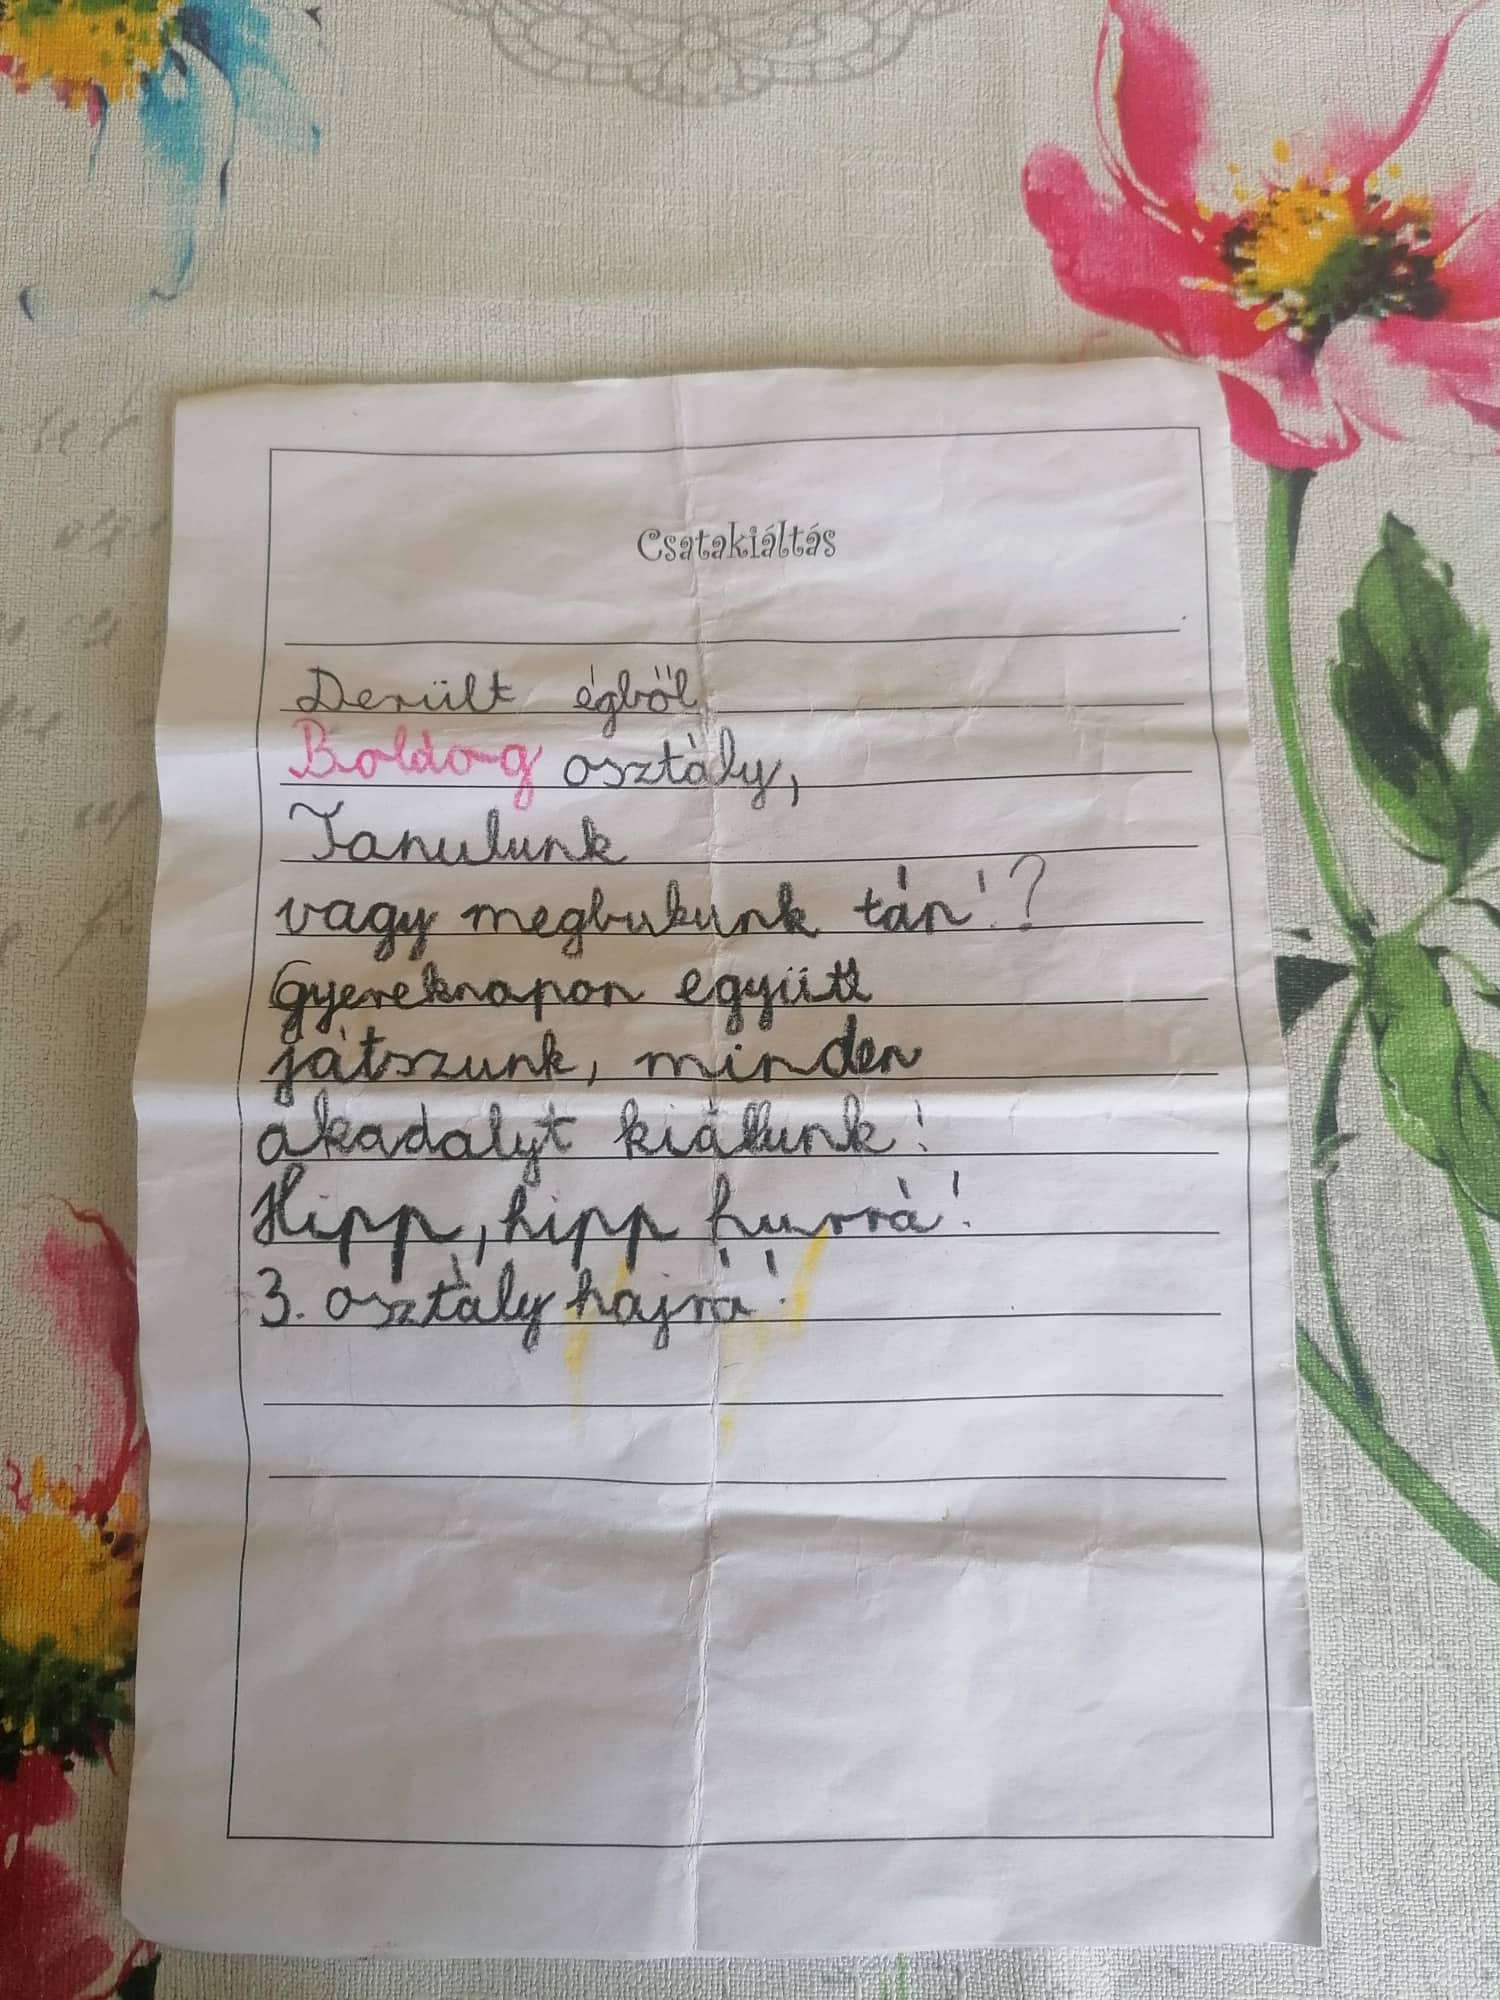 Csatakiáltás
Derült égből
Boldog osztály,
Tanulunk
vagy megbukunk tán!?
Gyereknapon együtt
játszunk, minden
akadalyt kiállunk!
Hipp, hipp hurrá!
3. osztály hajrá!